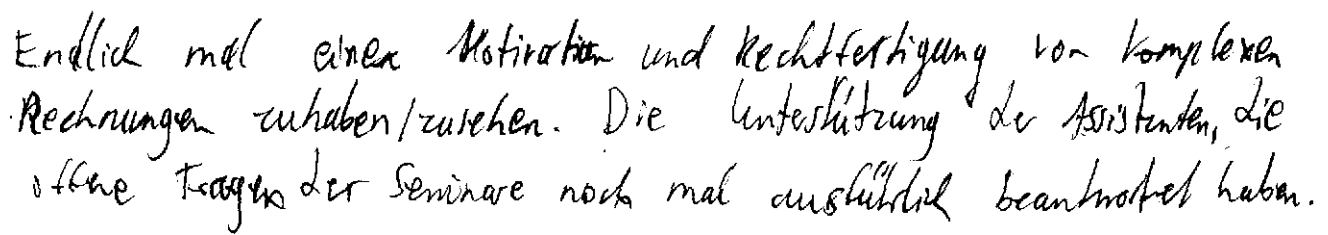 Endlich mal einen Motivation und Rechtfertigung von komplexen
Rechnungen zuhaben/zusehen. Die Unterstützung der Assistenten, die
offene Fragen der Seminare noch mal ausführlich beantwortet haben.